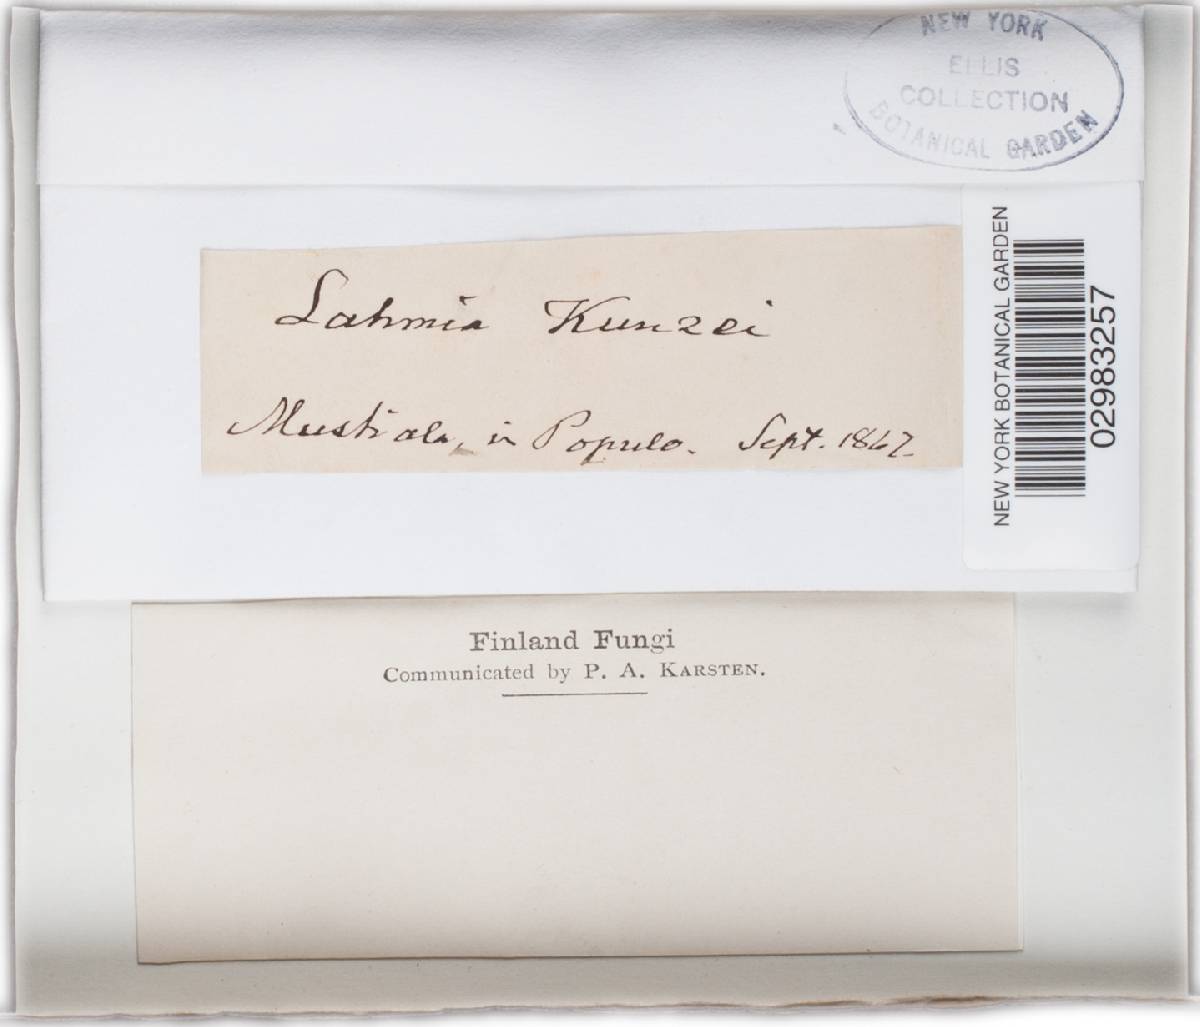 NEW YORK
ELLIS
COLLECTION
BOTANICAL GARDEN
Lahmia Kunzei
Mustiala, in Populo. Sept. 1867.
NEW YORK BOTANICAL GARDEN
02983257
Finland Fungi
Communicated by P. A. KARSTEN.